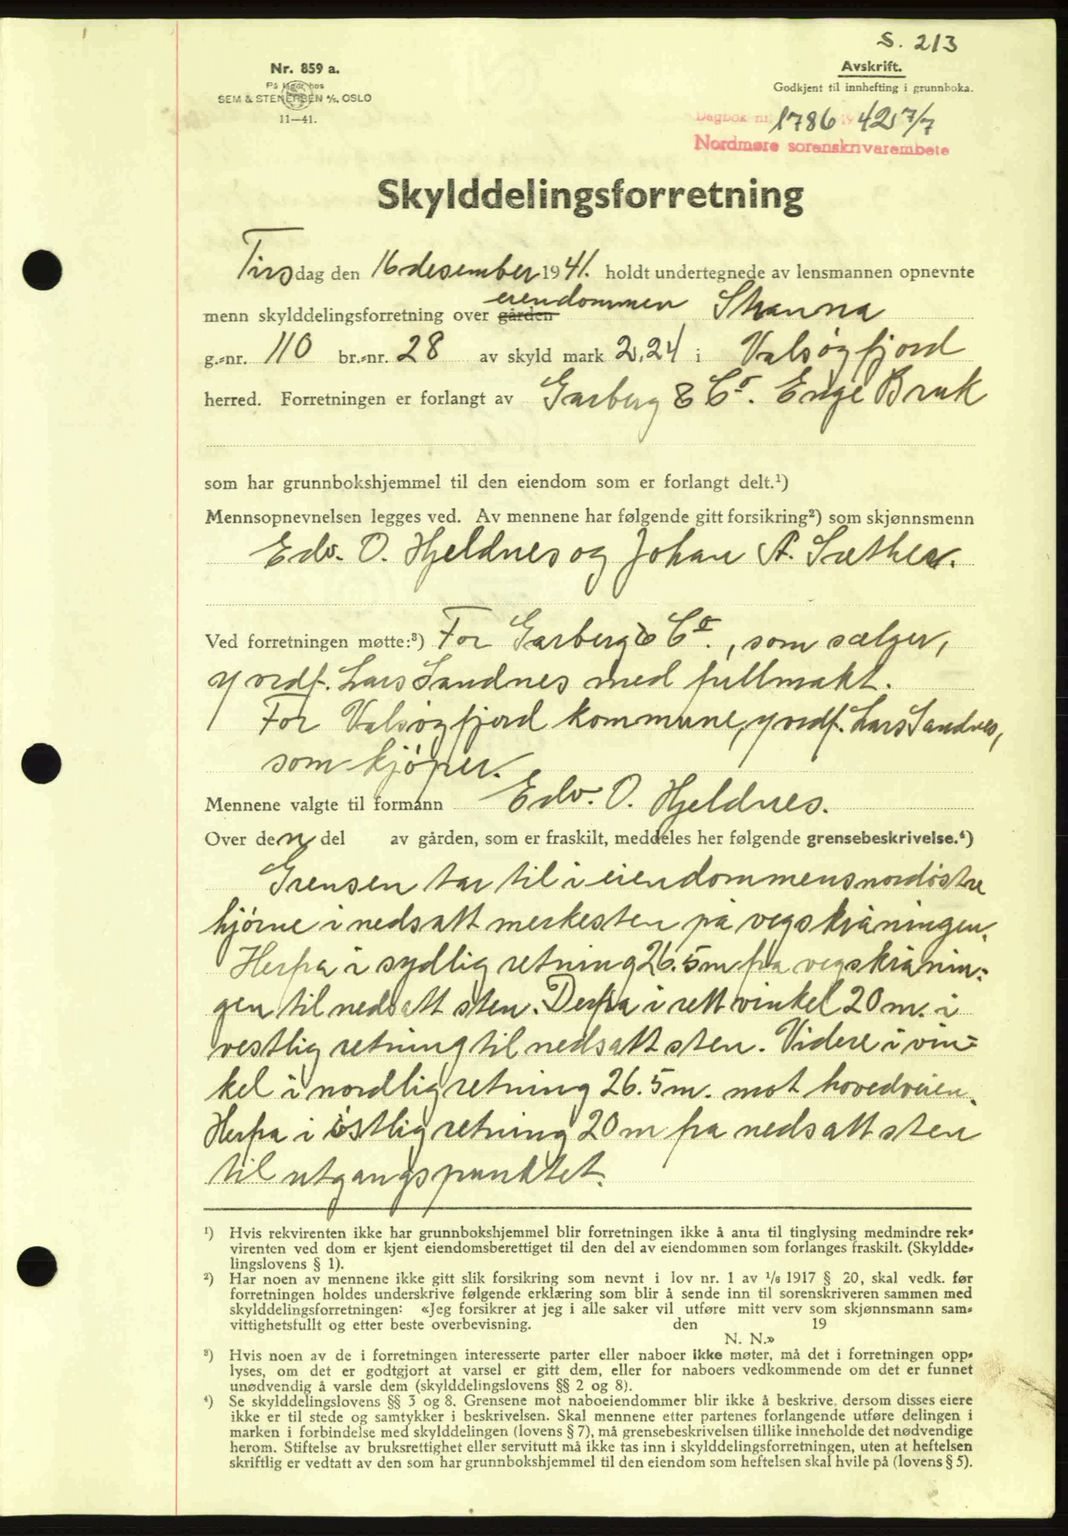 S. 213
Nr. 859 a.
På lager hos
SEM & STENERSEN A/S, OSLO
11—41.
Avskrift.
Godkjent til innhefting i grunnboka.
Dagbok nr. 1786 1942 7/7
Nordmøre sorenskrivarembete
Skylddelingsforretning
Tirsdag den 16 desember 1941. holdt undertegnede av lensmannen opnevnte
eiendommen
menn skylddelingsforretning over gården Skanna
g.-nr. 110 br.-nr. 28 av skyld mark 2,24 i Valsøyfjord
herred. Forretningen er forlangt av Garberg & Co. Enge Bruk
som har grunnbokshjemmel til den eiendom som er forlangt delt.¹)
Mennsopnevnelsen legges ved. Av mennene har følgende gitt forsikring²) som skjønnsmenn
Edv. O. Hjeldnes og Johan A. Sæther.
Ved forretningen møtte:³) For Garberg & Co., som sælger,
v ordf. Lars Sandnes med fullmakt.
For Valsøyfjord kommune, v ordf. Lars Sandnes,
som kjøper.
Mennene valgte til formann Edv. O. Hjeldnes.
Over den del av gården, som er fraskilt, meddeles her følgende grensebeskrivelse.⁴)
Grensen tar til i eiendommens nordøstre
hjørne i nedsatt merkesten på vegskråningen.
Herfra i sydlig retning 26.5 m fra vegskrånin-
gen til nedsatt sten. Derfra i rett vinkel 20 m. i
vestlig retning til nedsatt sten. Videre i vin-
kel i nordlig retning 26.5 m. mot hovedveien.
Herfra i østlig retning 20 m fra nedsatt sten
til utgangspunktet.
¹) Hvis rekvirenten ikke har grunnbokshjemmel blir forretningen ikke å anta til tinglysing medmindre rek-
virenten ved dom er kjent eiendomsberettiget til den del av eiendommen som forlanges fraskilt. (Skyldde-
lingslovens § 1).
²) Har noen av mennene ikke gitt slik forsikring som nevnt i lov nr. 1 av 1/6 1917 § 20, skal vedk. før
forretningen holdes underskrive følgende erklæring som blir å sende inn til sorenskriveren sammen med
skylddelingsforretningen: «Jeg forsikrer at jeg i alle saker vil utføre mitt verv som skjønnsmann sam-
vittighetsfullt og etter beste overbevisning. den 19
N. N.»
³) Hvis noen av de i forretningen interesserte parter eller naboer ikke møter, må det i forretningen opp-
lyses, om det er godtgjort at varsel er gitt dem, eller for naboers vedkommende om det er funnet
unødvendig å varsle dem (skylddelingslovens §§ 2 og 8).
⁴) Se skylddelingslovens §§ 3 og 8. Grensene mot naboeiendommer blir ikke å beskrive, dersom disses eiere
ikke er til stede og samtykker i beskrivelsen. Skal mennene etter partenes forlangende utføre delingen i
marken i forbindelse med skylddelingen (lovens § 7), må grensebeskrivelsen tillike inneholde det nødvendige
herom. Stiftelse av bruksrettighet eller servitutt må ikke tas inn i skylddelingsforretningen, uten at heftelsen
skriftlig er vedtatt av den som har grunnbokshjemmel til den eiendom som heftelsen skal hvile på (lovens § 5).